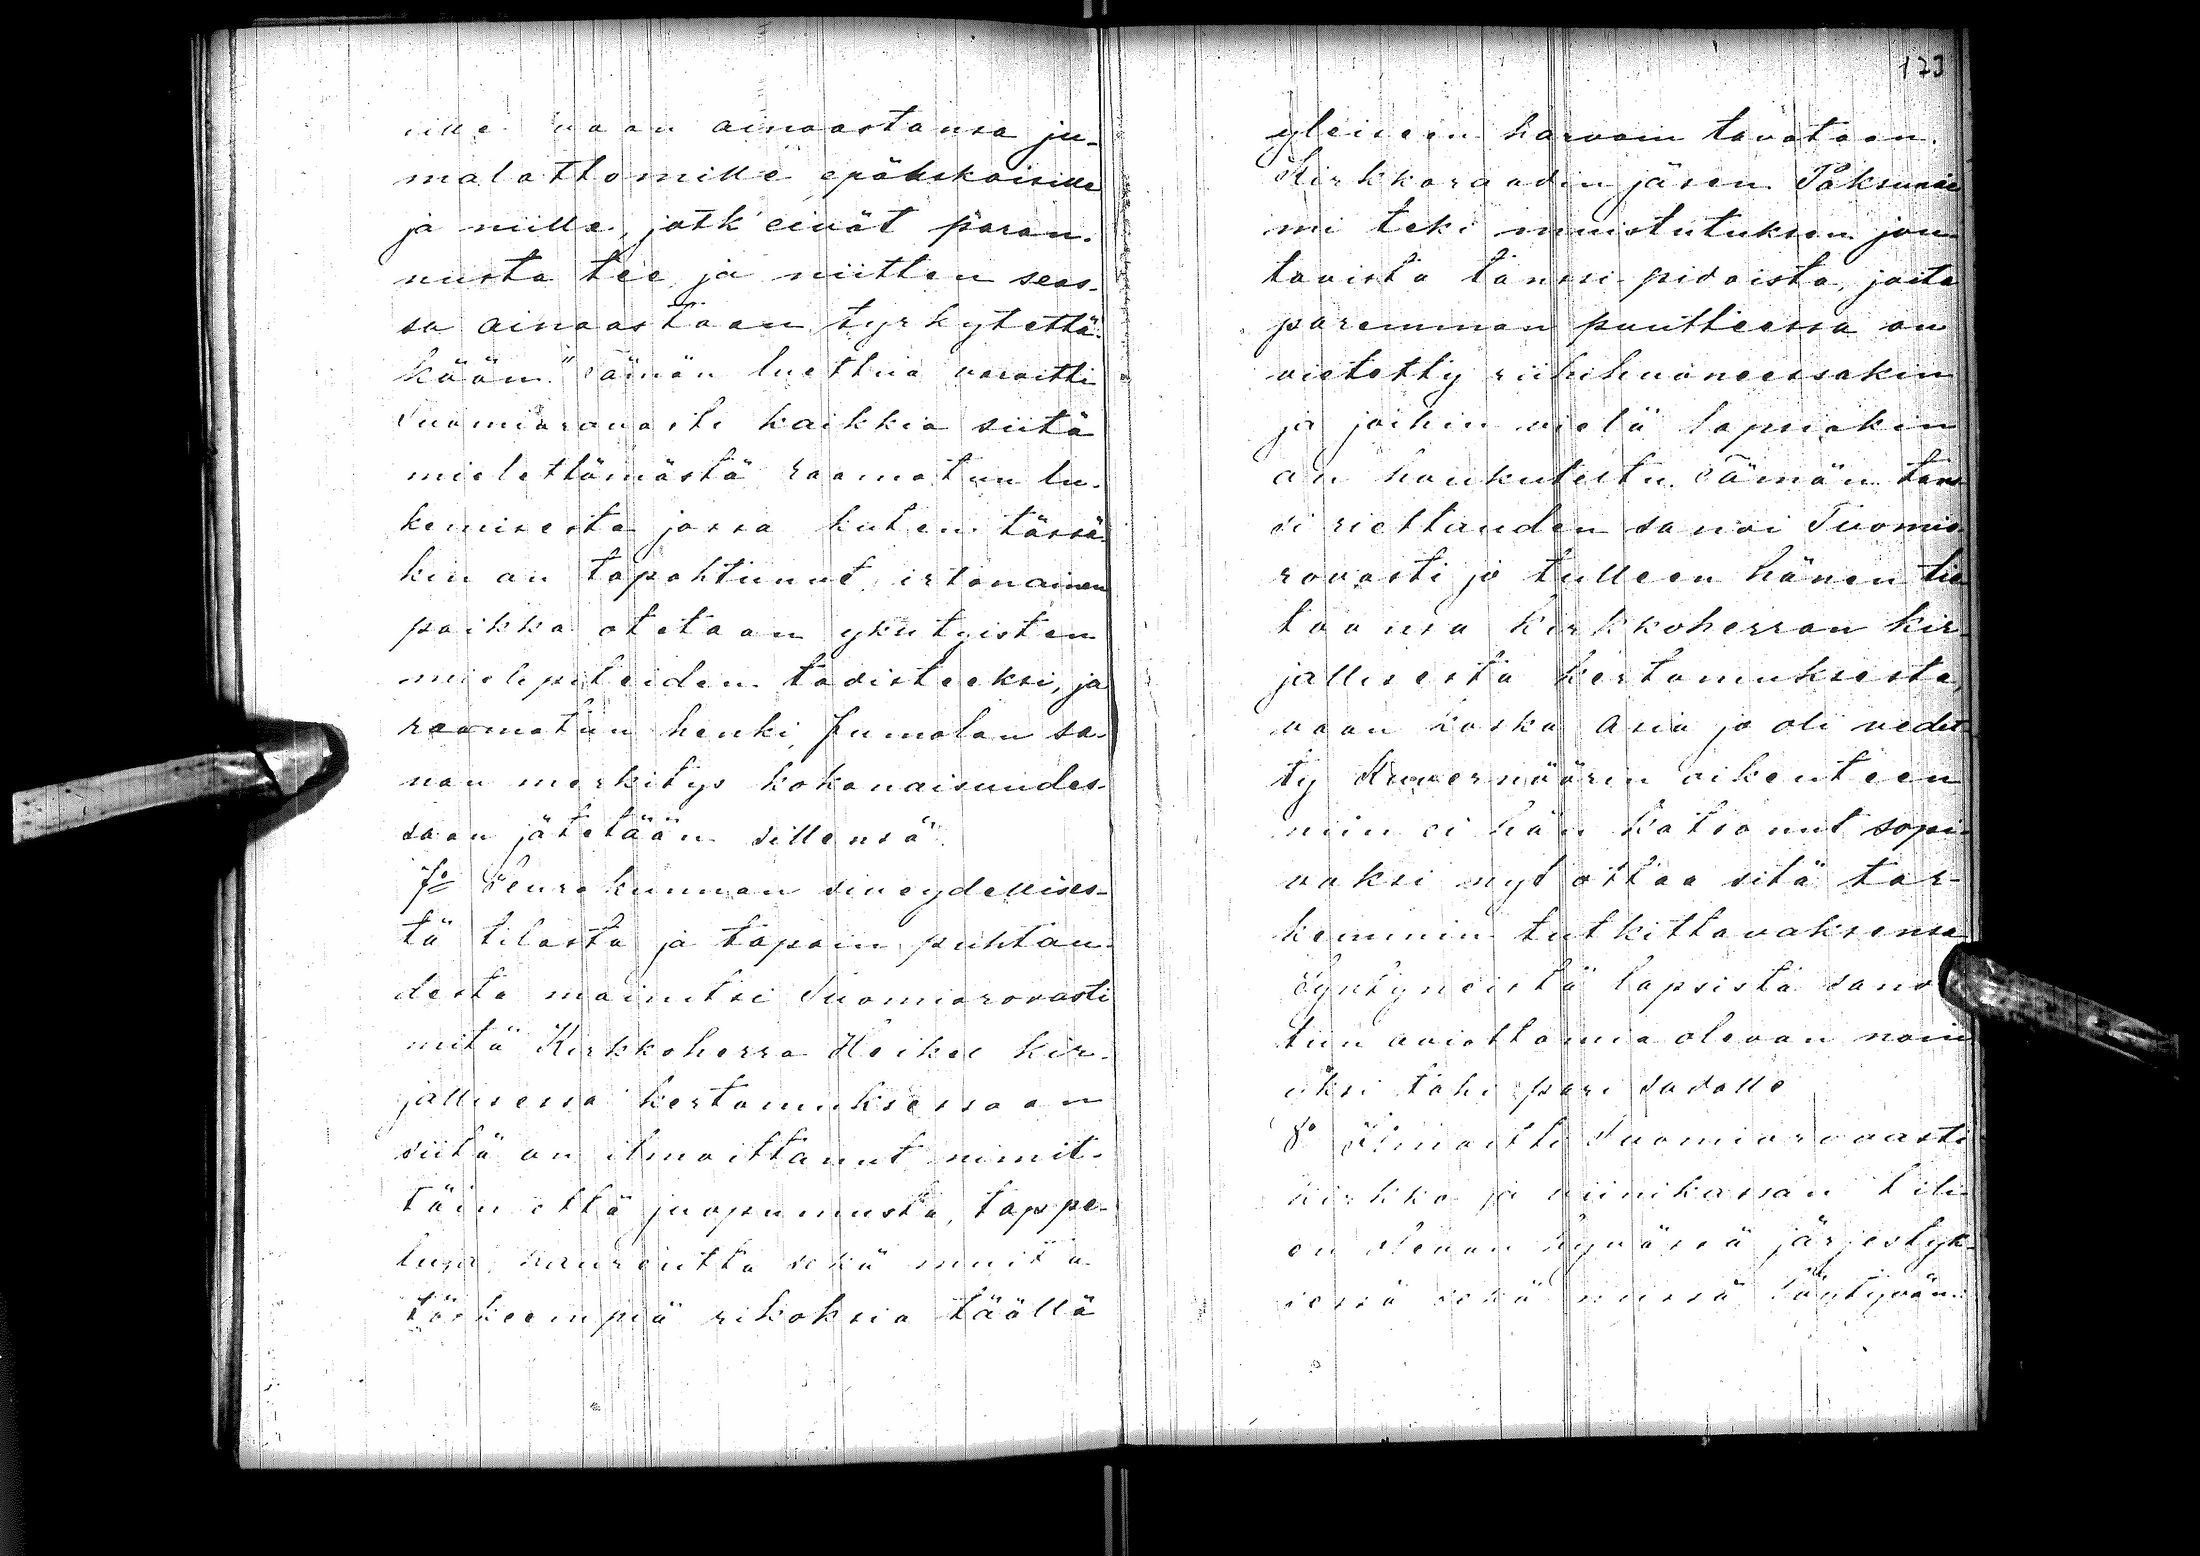 ille vaan ainoastansa ju-
malattomille epäuskoisille
ja niille, jotk' eivät paran-
nusta tee ja niitten seas-
sa ainoastaan tyrkytettä-
köön." Tämän luettua varoitti
Tuomiorovasti kaikkia siitä
mielettömästä raamatun lu-
kemisesta jossa kuten tässä-
kin on tapahtunut, irtonainen
paikka otetaan yksityisten
mielipiteiden todisteeksi, ja
raamatun henki, Jumalan sa-
nan merkitys kokonaisuudes-
saan jätetään sillensä.
7o Seurakunnan siveydellises-
tä tilasta ja tapain puhtau-
desta mainitsi Tuomiorovasti
mitä Kirkkoherra Heikel kir-
jallisessa kertomuksessaan
siitä on ilmoittanut nimit-
täin että juopumusta, tappe-
luja, haureutta sekä muita
törkeempiä rikoksia täällä
123
yleiseen harvoin tavataan.
Kirkkoraadin jäsen Paksunie
mi teki muistutuksen jou-
tavista tanssi pidoista, joita
paremman puutteessa on
vietetty riihihuoneessakin
ja joihin vielä lapsiakin
on houkuteltu. Tämän tans
si riettauden sanoi Tuomio-
rovasti jo tulleen hänen tie
toonsa kirkkoherran kir-
jallisesta kertomuksesta,
vaan koska asia jo oli vedet-
ty Kuvernöörin oikeuteen
niin ei hän katsonut sopi-
vaksi nyt ottaa sitä tar-
kemmin tutkittavaksensa
Syntyneistä lapsista sanot
tiin aviottomia olevan noin
yksi tahi pari sadalle
8o Ilmoitti Tuomiorovasti
kirkko ja viinikassan tili-
en olevan hyvässä järjestyk-
sessä sekä niissä löytyvän